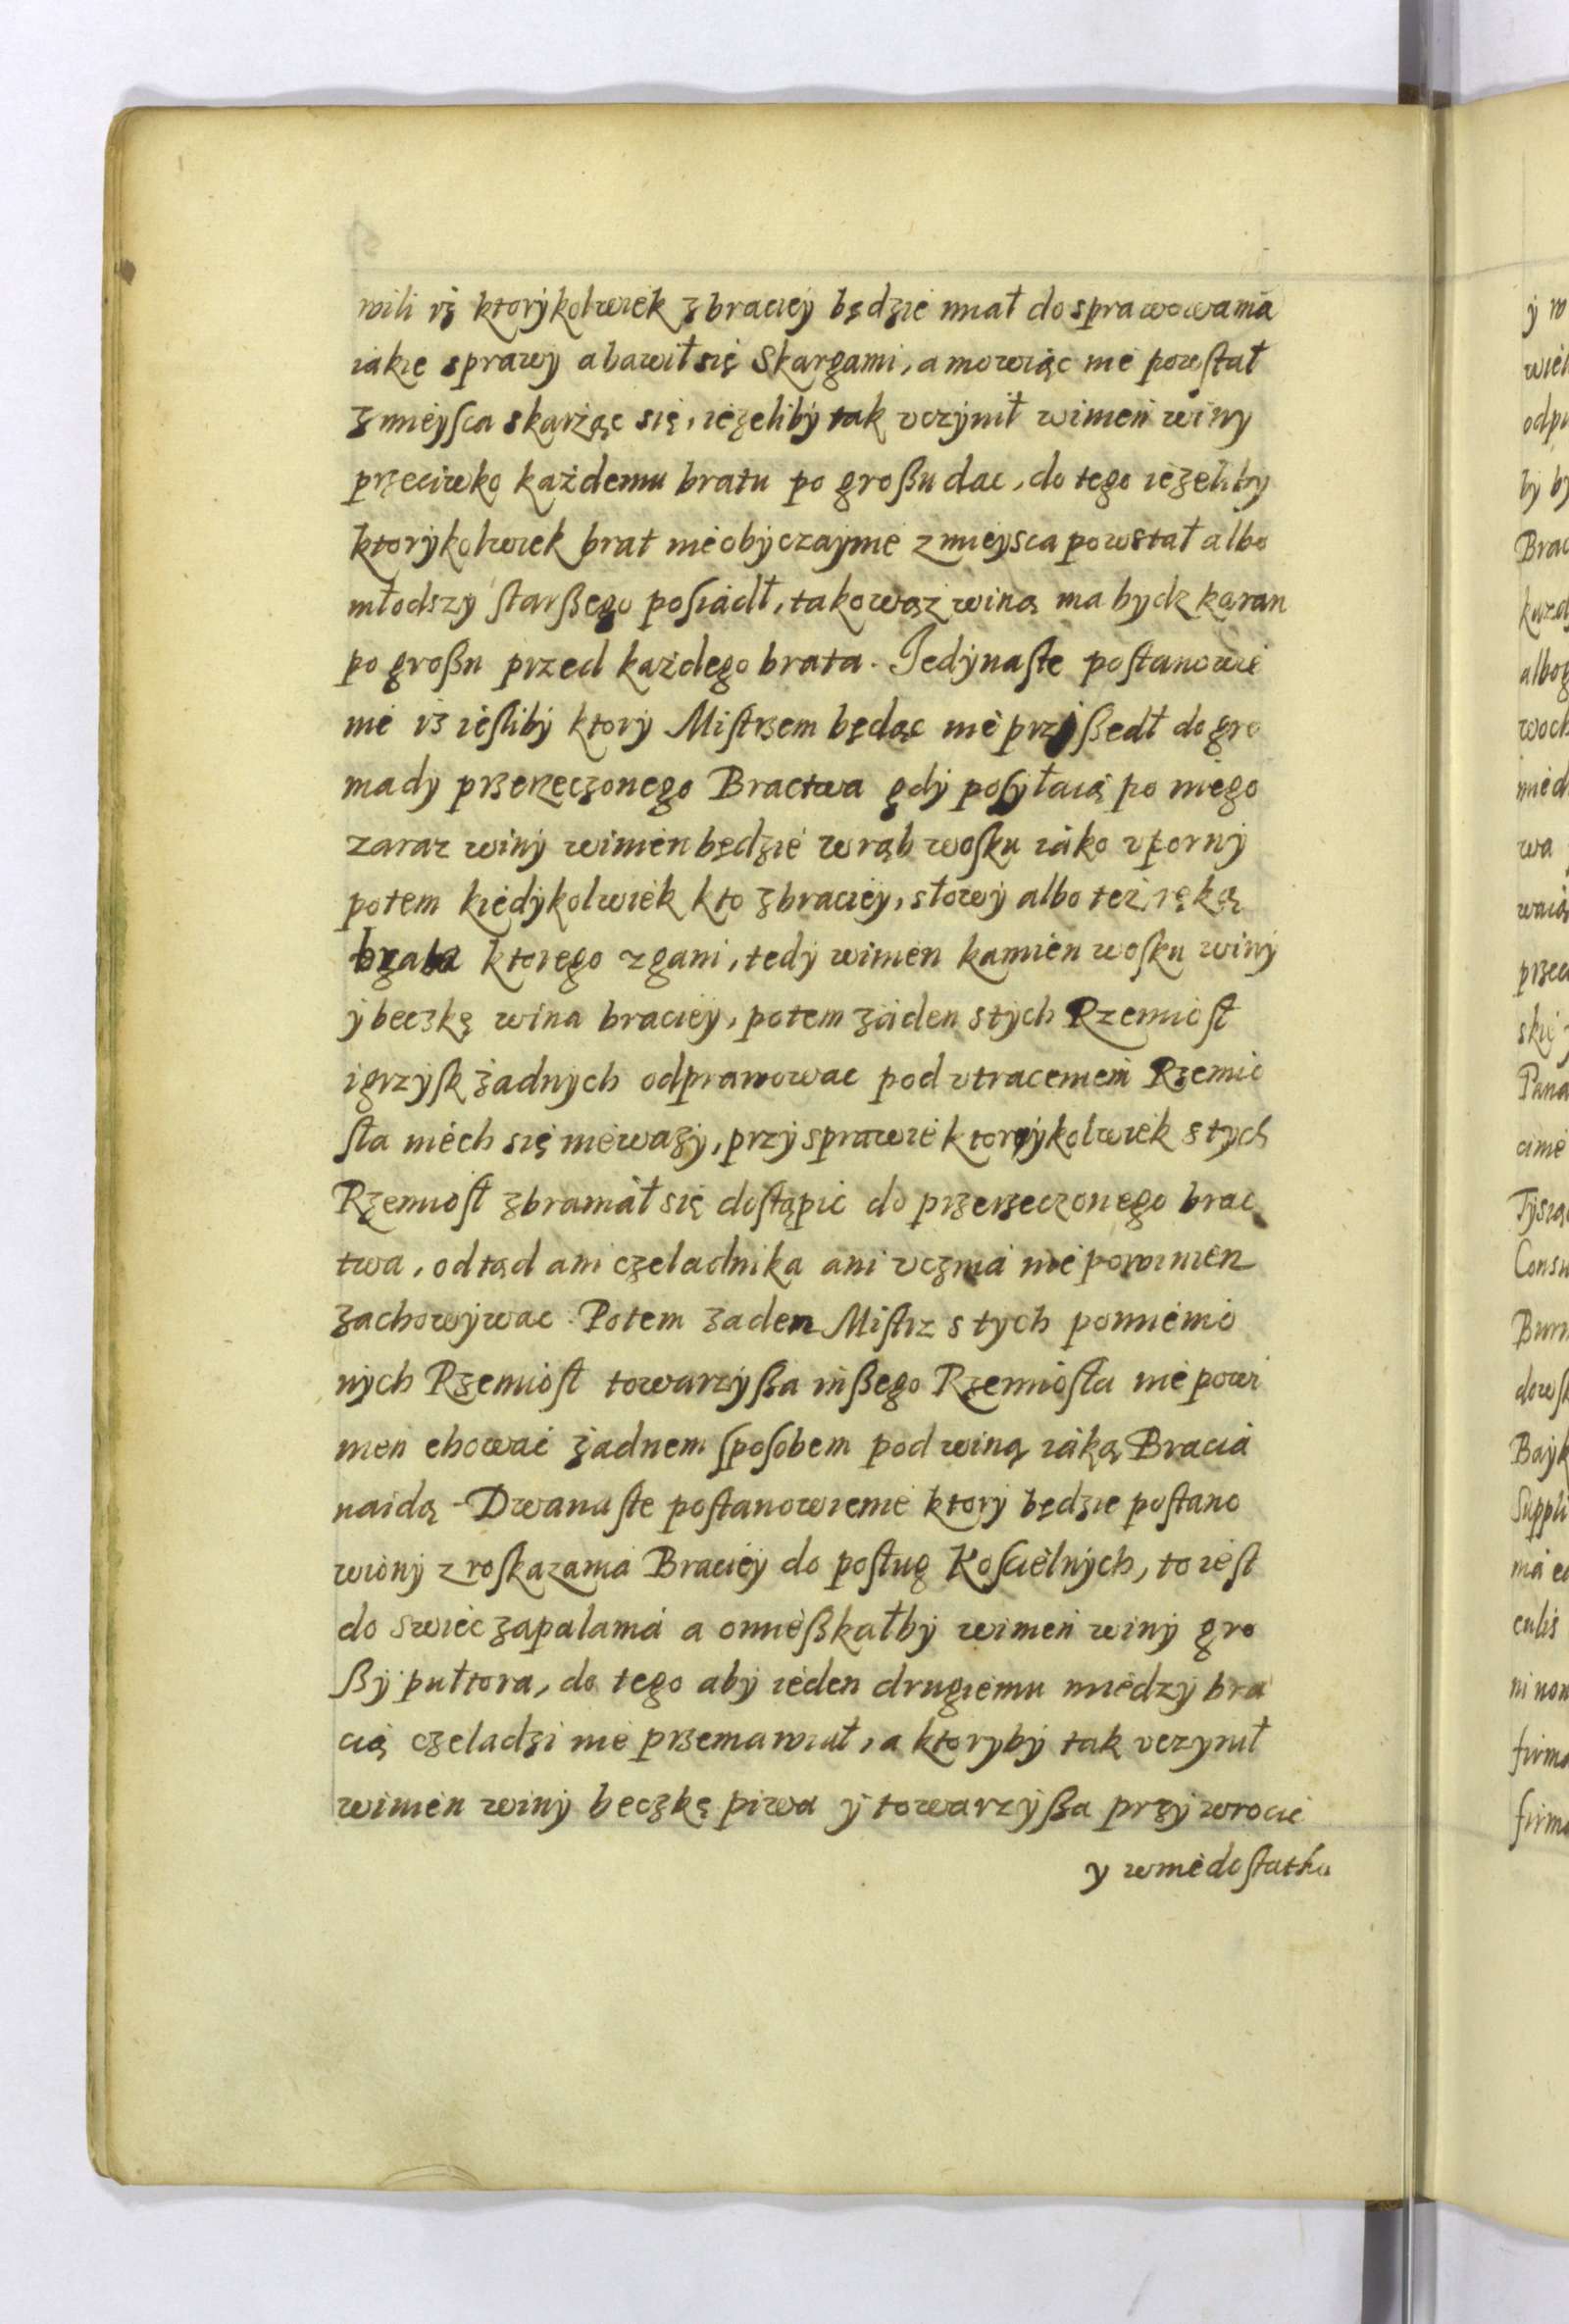 wili iż ktorykolwiek z braciey będzie miał do sprawowania
iakie sprawy a bawił się Skargami, a mowiąc nie powstał
z mieysca skarżąc się, ieżeliby tak vczynił winien winy
przeciwko każdemu bratu po großu dac, do tego ieżeliby
ktorykolwiek brat nieobyczaynie z mieysca powstał albo
młodszy starßego posiadł, takowąż winą ma bydz karan
po großu przed każdego brata. Jedynaste postanowie
nie iż iesliby ktory Mistrzem będąc nie przyßedł do gro
mady przerzeczonego Bractwa gdy posyłaią po niego
zaraz winy winien będzie wrąb wosku iako vporny
potem kiedykolwiek kto z braciey, słowy albo też ręką
brata ktorego zgani, tedy winien kamien wosku winy
y beczkę wina braciey, potem żaden s tych Rzemiosł
igrzysk żadnych odprawowac pod vtraceniem Rzemio
sła niech się nieważy, przy sprawie ktorykolwiek s tych
Rzemiosł zbraniał się dostąpic do przerzeczonego brac
twa, odtąd ani czeladnika ani vcznia nie powinien
zachowywac. Potem żaden Mistrz s tych pomienio
nych Rzemiosł towarzyßa inßego Rzemiosła nie powi
nien chowac żadnem sposobem pod winą iaką Bracia
naidą - Dwanaste postanowienie ktory będzie postano
wiony z roskazania Braciey do posług Koscielnych, to iest
do swiec zapalania a omießkałby winien winy gro
ßy pułtora, do tego aby ieden drugiemu miedzy bra
cią czeladzi nie przemawiał, a ktoryby tak vczynił
winien winy beczkę piwa y towarzyßa przywrocic
y wniedostatku